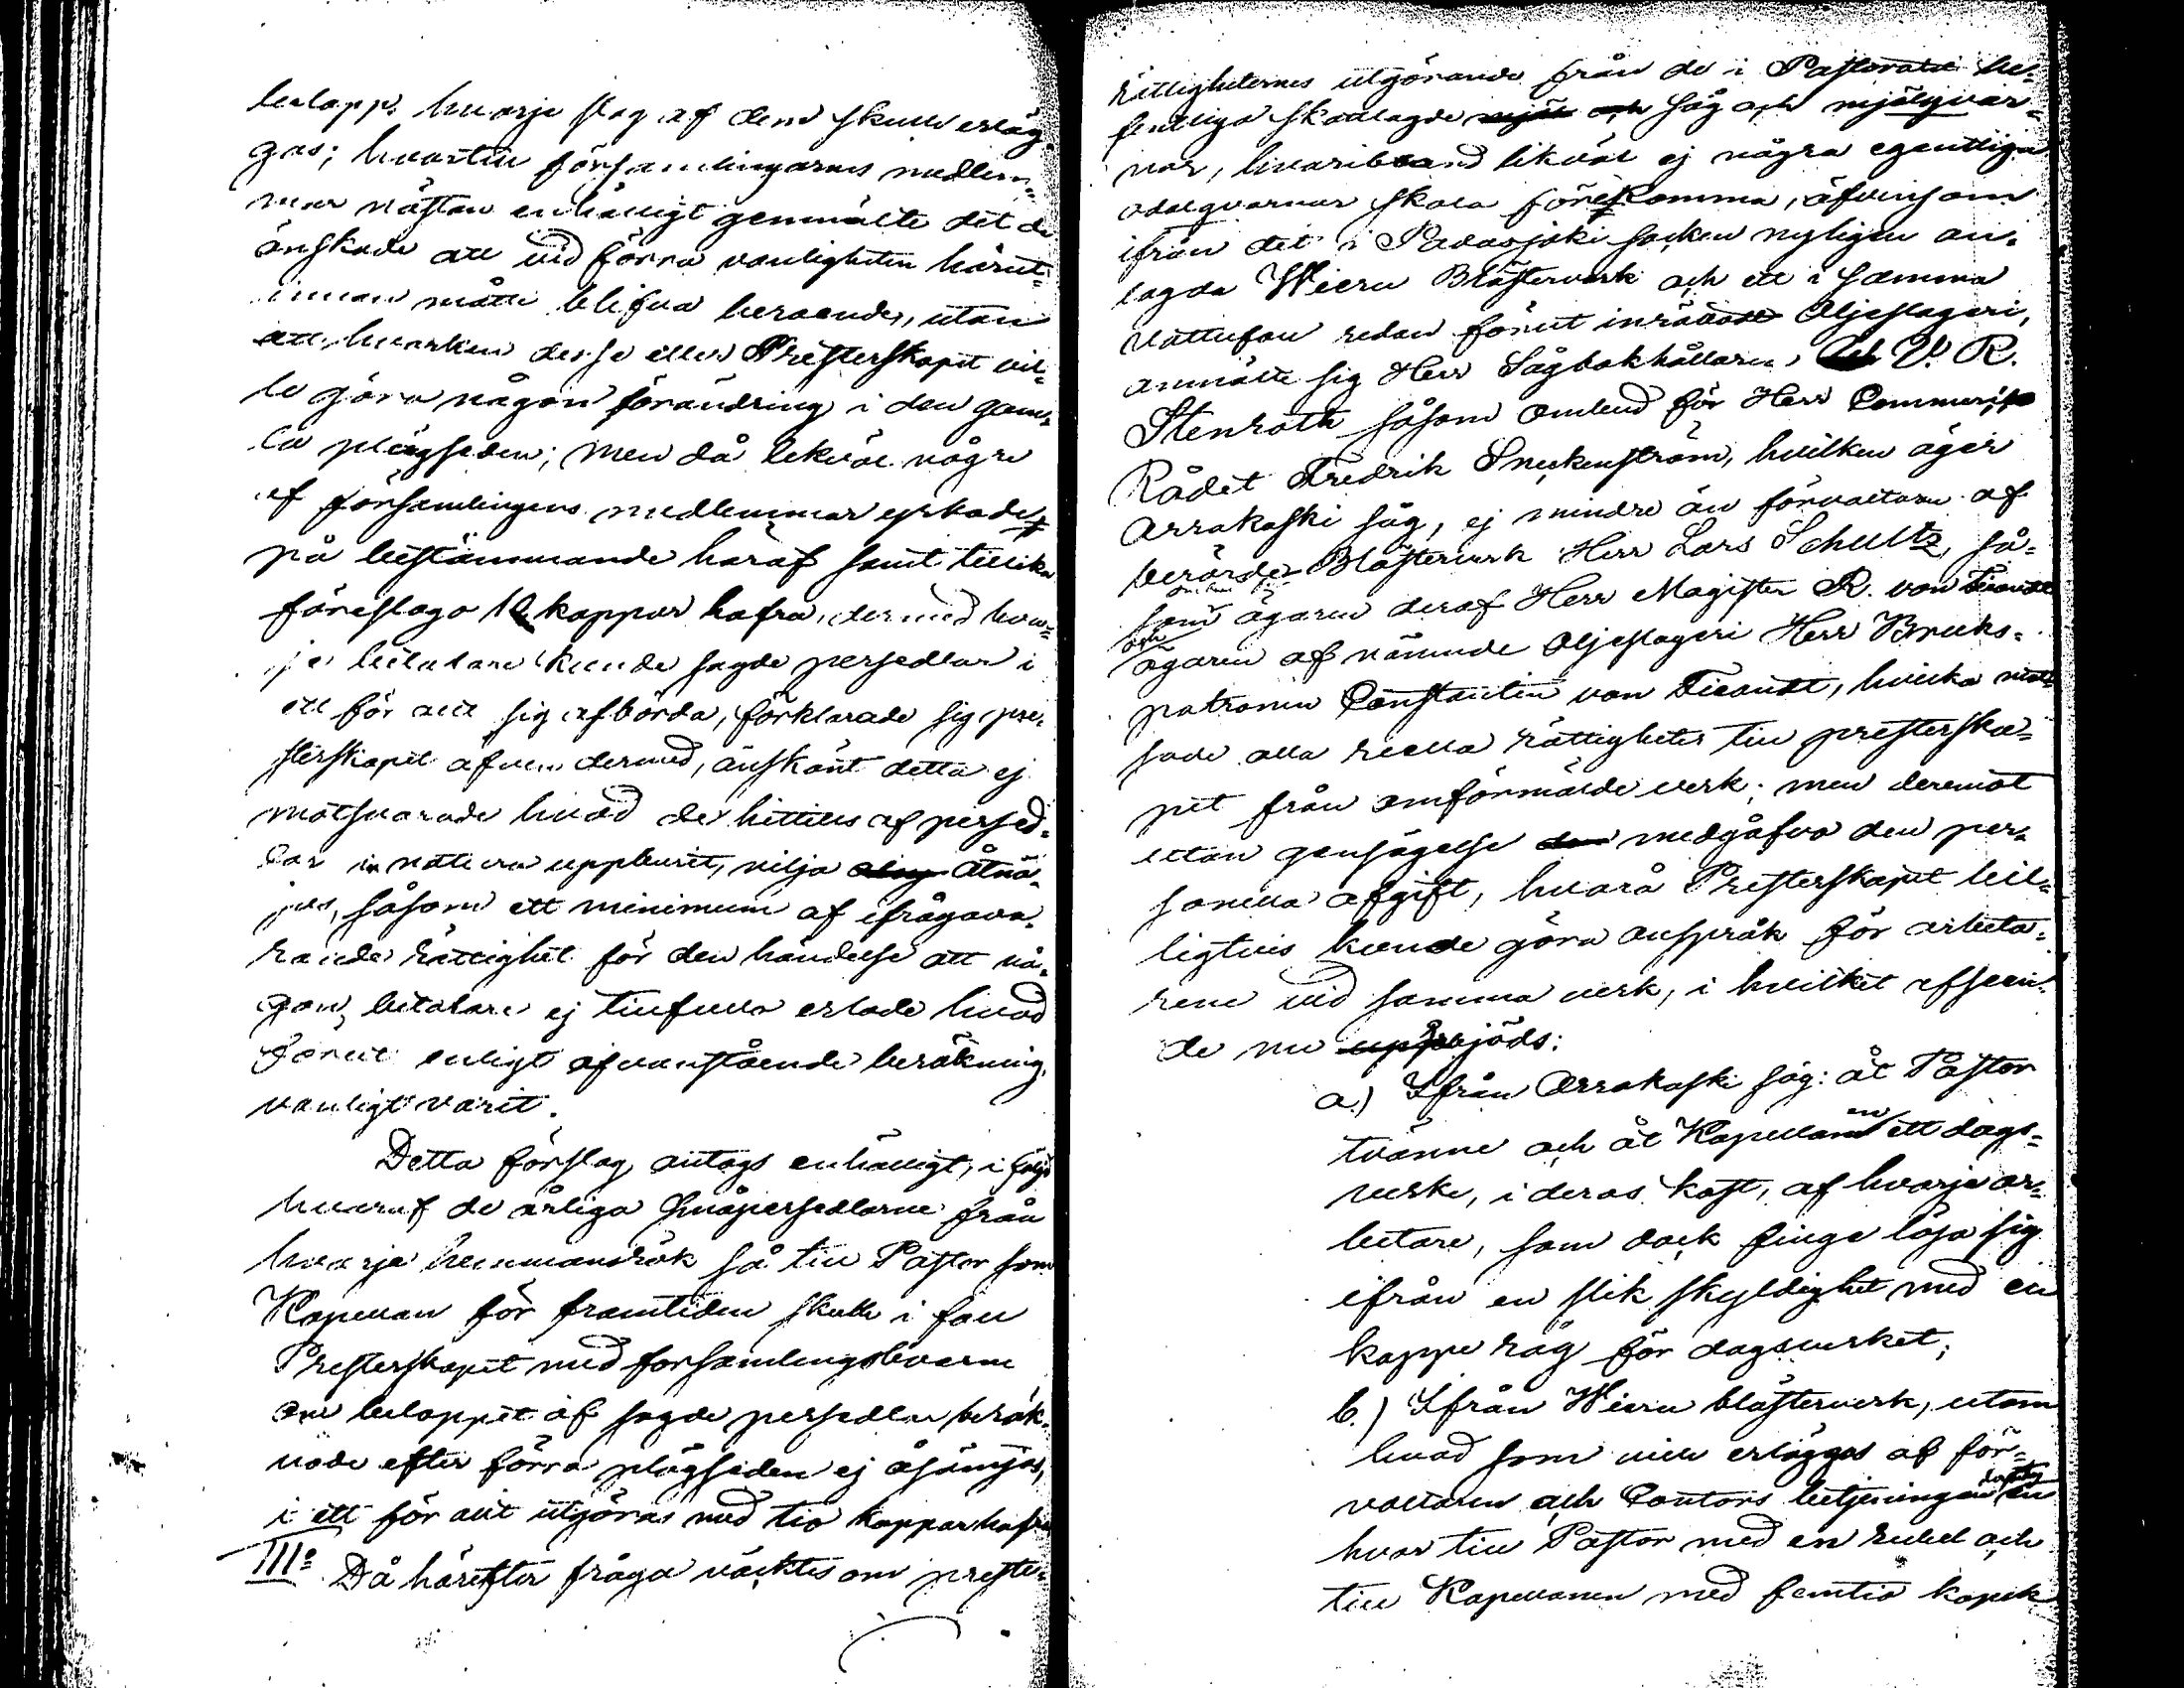 belopp hvarje slag af dem skulle erläg
gas; hvartill församlingarnes medlem=
mar nästan enhälligt genmälte det de
önskade att vid förra vanligheten härut=
innan måtte blifva beroende, utan
att hvarken desse eller Presterskapet vil=
le göra någon förändring i den gam=
la plägseden; men då likväl några
af församlingens medlemmar yrkade
på bestämmande häraf samt tillika
föreslogo 10 kappar hafra, dermed hvar=
je betalare kunde sagde persedlar i
ett för allt sig afbörda, förklarade sig pre=
sterskapet äfven dermed, änskönt detta ej
motsvarade hvad de hittills af persed=
lar in natura uppburit, vilja åtnö=
jas, såsom ett minimum af ifrågava=
rande rättighet för den händelse att nå=
gon betalare ej tillfullo erlade hvad
förut enligt ofvanstående beräkning
vanligt varit.
Detta förslag antogs enhälligt, i följd
hvaraf de årliga småpersedlarne från
hvarje hemmansrök så till Pastor som
Kapellan för framtiden skulle i fall
Presterskapet med församlingsboerne
om beloppet af sagde persedlar beräk=
nade efter förra plägseden ej åsämjas,
i ett för allt utgöras med tio kappar hafra
IIIo Då härefter fråga väcktes om preste=
rättigheternes utgörande från de i Pastoratet be=
fintliga skattlagde mjöl och såg och mjölqvar=
nar, hvaribland likväl ej några egentliga
odalqvarnar skola förekomma, äfvensom
ifrån det i Padasjoki socken nyligen an=
lagda Wieru Blästerverk och ett i samma
vattufall redan förut inrättadt Oljeslageri,
anmälte sig Herr Sågbokhållaren V. R.
Stenroth såsom ombud för Herr Commerce
Rådet Fredrik Sneckenström, hvilken äger
Arrakoski såg, ej mindre än förvaltaren af
berörde Blästerverk Herr Lars Schultz, så=
som ägaren deraf Herr Magister R. von Fieandt
och
ägaren af nämnde Oljeslageri Herr Bruks=
patronen Constantin von Fieandt, hvilka
sade alla reella rättigheter till presterska=
pet från omförmälde verk; men deremot
utan gensägelse medgåfvo den per=
sonella afgift, hvarå Presterskapet bil=
ligtvis kunde göra anspråk för arbeta=
rene vid samma verk, i hvilket afseen=
de nu uppbjöds:
a.) Ifrån Arrakoski såg: åt Pastor
tvänne och åt Kapellanen ett dags=
verke, i deras kost, af hvarje ar=
betare, som dock finge lösa sig
ifrån en slik skyldighet med en
kappe råg för dagsverket;
b.) Ifrån Wieru blästerverk, utom
hvad som vill erläggas af för=
valtaren och Contors betjeningen
hvar till Pastor med en rubel och
till Kapellanen med femtio kopek